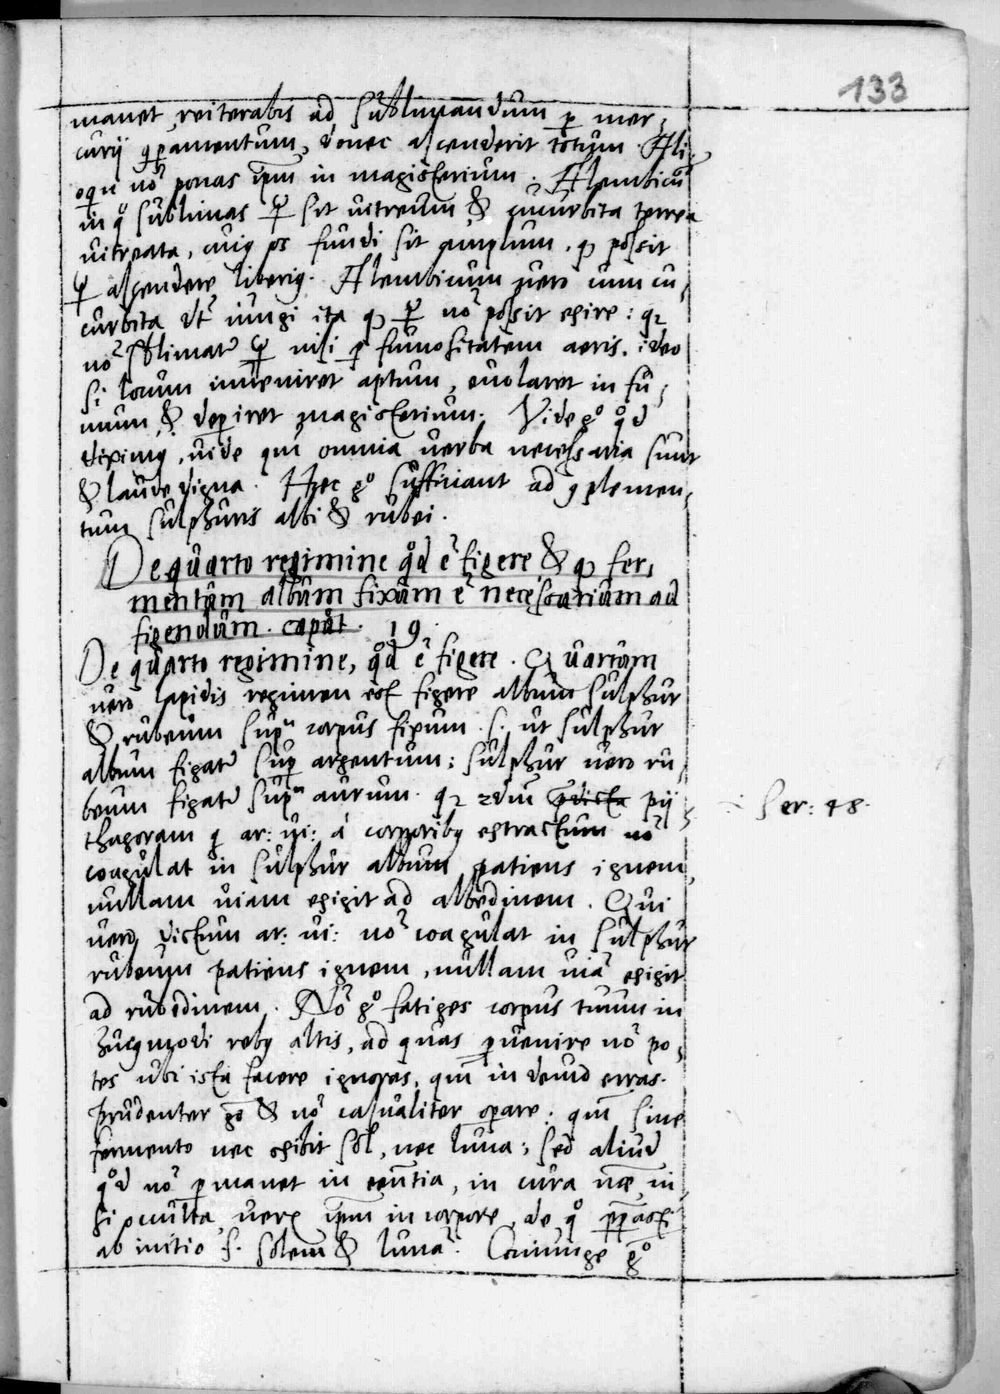 133
manet, reiterabis ad sublimandum p mer,
curij q̃pamentum, donec ascenderit totum. Ali,
oqui nõ ponas ipm̃ in magisterium. Alembicũ
in qͦ sublimas ☿ sit uitreum & cucurbita terrea
uitreata, cuiꝰ os fundi sit amplum, qꝫ possit
☿ ascendere liberiꝰ. Alembicum uero cum cu,
curbita dt̃ iungi ita qꝫ ☿ nõ possit exire: qꝛ
nõ sblimat᷑ ☿ nisi p fumositatem aeris. ideo
si locum inueniret aptum, euolaret in fu,
mum, & dep̱iret magisterium. Vide gͦ qͦd
diximꝰ, uide qm̃ omnia uerba necessaria sunt
& laude digna. Hec gͦ sufficiant ad ꝯplemen,
tum sulphuris albi & rubei.
De quarto regimine qͦd ẽ figere, & qꝫ fer,
mentum album fixum ẽ necessarium ad
figendum. caput. 19.
De quarto regimine, qͦd ẽ figere. Quartum
uero lapidis regimen est figere album sulphur
& rubeum supᵃ corpus fixum .s. ut sulphur
album figat᷑ sup̱ argentum: sulphur uero ru,
beum figat᷑ supᵃ aurum. qꝛ ẜdm̃ p̃dicta pij
thagoram q ar: ui: a corporibꝰ extractum nõ
coagulat in sulphur album patiens ignem,
nullam uiam exigit ad albedinem. Qui
uero dictum ar: ui: nõ coagulat in sulphur
rubeum patiens ignem, nullam uiã exigit
ad rubedinem. Nõ gͦ fatiges corpus tuum in
huiꝰmodi rebꝰ altis, ad quas p̱uenire nõ po,
tes ubi ista facere ignoras, qm̃ in deuio erras.
Prudenter gͦ & nõ casualiter opare: qm̃ sine
fermento nec exibit sol, nec luna; sed aliud
qͦd nõ p̱manet in eẽntia, in cura nrẽ, ni
si occulta uere ipm̃ in corpore, de qͦ
ab initio .s. solem & lunã. Coniunge gͦ
Ser: 48.